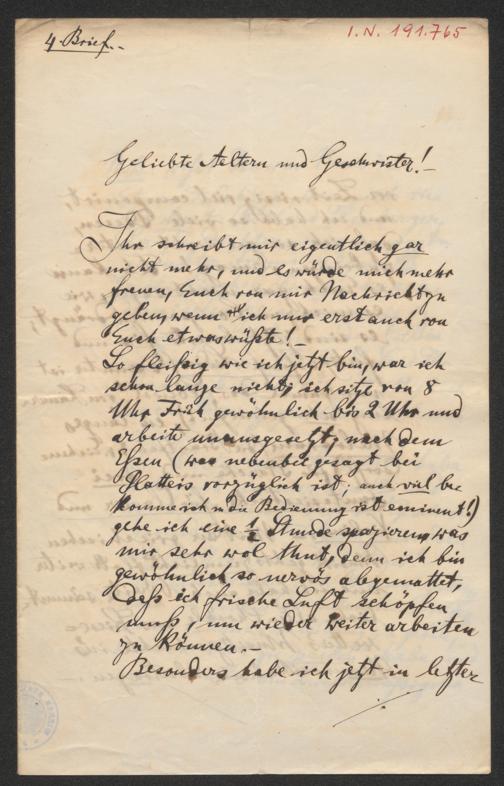 4. Brief.-
I. N. 191.765
Geliebte Aeltern und Geschwister! –
Ihr schreibt mir eigentlich gar
nicht mehr, und es würde mich mehr
freuen, Euch von mir Nachricht zu
geben, wenn ich nur erst auch von
Euch etwas wüßte! –
So fleißig wie ich jetzt bin, war ich
schon lange nicht; ich sitze von 8
Uhr Früh gewöhnlich bis 2 Uhr und
arbeite unausgesetzt, nach dem
Essen (was nebenbei gesagt bei
Glatteis vorzüglich ist; auch viel be-
komme ich u die Bedienung ist eminent!)
gehe ich eine ½ Stunde spazieren, was
mir sehr wol thut, denn ich bin
gewöhnlich so nervös abgemattet,
daß ich frische Luft schöpfen
muß, um wieder weiter arbeiten
zu können. –
Besonders habe ich jetzt in letzter